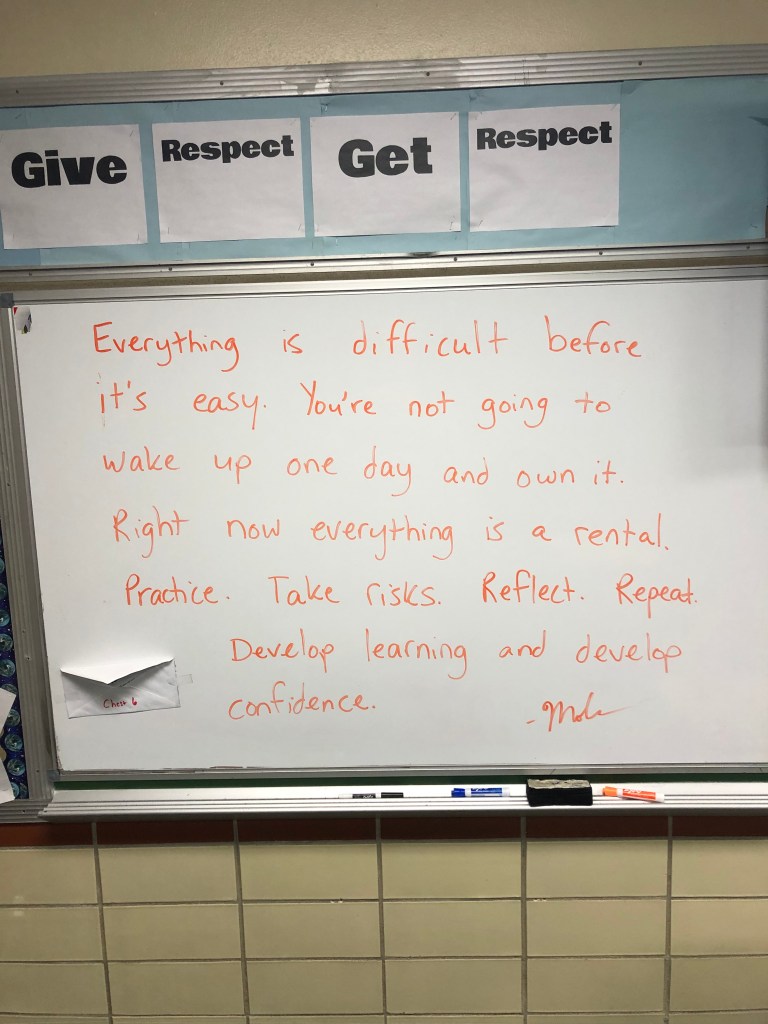 Give Respect Get Respect
Everything is difficult before
it's easy. You're not going to
wake up one day and own it.
Right now everything is a rental.
Practice. Take risks. Reflect. Repeat.
Develop learning and develop
confidence.
Chest 6